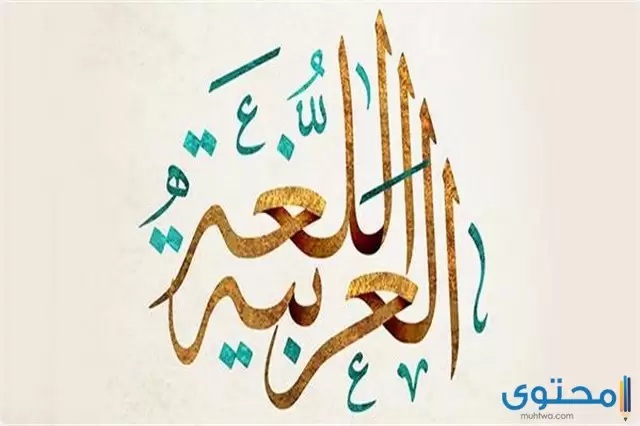 اللغة
العربية
محتوى
muhtwa.com